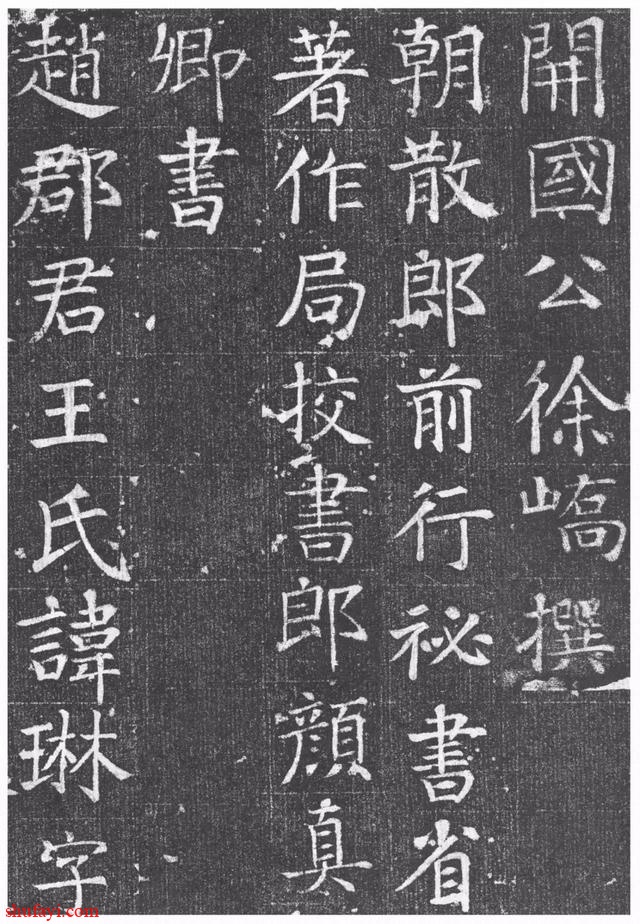 開國公徐嶠撰
朝散郎前行祕書省
著作局挍書郎顏真
卿書
趙郡君王氏諱琳字
shufayi.com